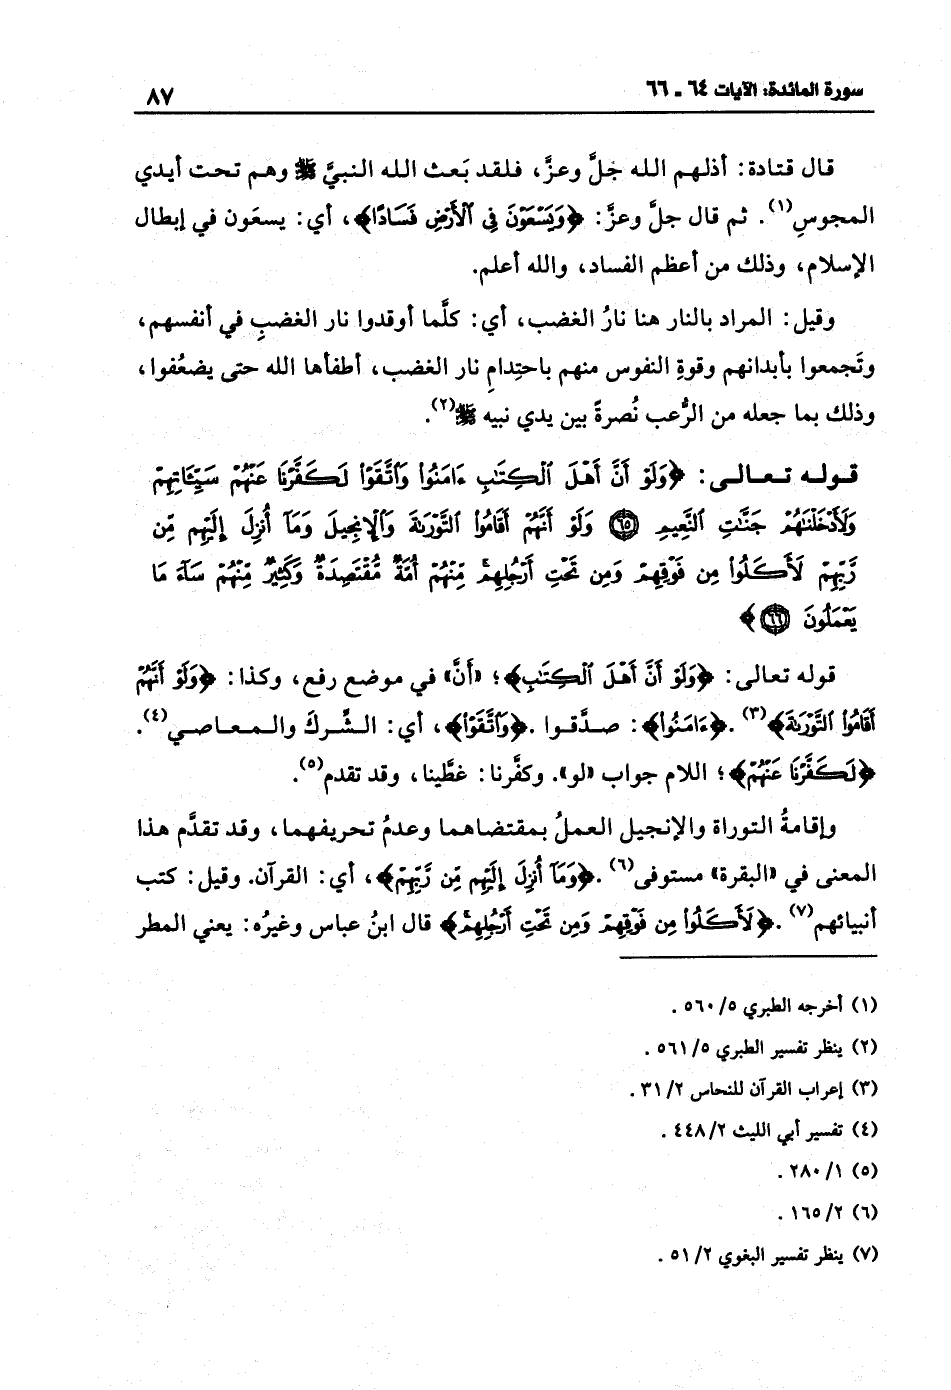 سورة المائدة: الآيات ٦٤ ـ ٦٦
٨٧
قال قتادة: أذلهم الله جلَّ وعزَّ، فلقد بَعث الله النبيَّ ﷺ وهم تحت أيدي
المجوسِ(١). ثم قال جلَّ وعزَّ: ﴿وَيَسْعَوْنَ فِي ٱلْأَرْضِ فَسَادًا﴾، أي: يسعَون في إبطال
الإسلام، وذلك من أعظم الفساد، والله أعلم.
وقيل: المراد بالنار هنا نارُ الغضب، أي: كلَّما أوقدوا نار الغضبِ في أنفسهم،
وتَجمعوا بأبدانهم وقوةِ النفوس منهم باحتِدامِ نار الغضب، أطفأها الله حتى يضعُفوا،
وذلك بما جعله من الرُّعب نُصرةً بين يدي نبيه ﷺ(٢).
قوله تعالى: ﴿وَلَوْ أَنَّ أَهْلَ ٱلْكِتَٰبِ ءَامَنُوا۟ وَٱتَّقَوْا۟ لَكَفَّرْنَا عَنْهُمْ سَيِّـَٔاتِهِمْ
وَلَأَدْخَلْنَٰهُمْ جَنَّٰتِ ٱلنَّعِيمِ ۝٦٥ وَلَوْ أَنَّهُمْ أَقَامُوا۟ ٱلتَّوْرَىٰةَ وَٱلْإِنجِيلَ وَمَآ أُنزِلَ إِلَيْهِم مِّن
رَّبِّهِمْ لَأَكَلُوا۟ مِن فَوْقِهِمْ وَمِن تَحْتِ أَرْجُلِهِمۚ مِّنْهُمْ أُمَّةٌ مُّقْتَصِدَةٌۖ وَكَثِيرٌ مِّنْهُمْ سَآءَ مَا
يَعْمَلُونَ ۝٦٦﴾
قوله تعالى: ﴿وَلَوْ أَنَّ أَهْلَ ٱلْكِتَٰبِ﴾؛ «أنَّ» في موضع رفع، وكذا: ﴿وَلَوْ أَنَّهُمْ
أَقَامُوا۟ ٱلتَّوْرَىٰةَ﴾(٣). ﴿ءَامَنُوا۟﴾: صدَّقوا. ﴿وَٱتَّقَوْا۟﴾، أي: الشِّركَ والمعاصي(٤).
﴿لَكَفَّرْنَا عَنْهُمْ﴾؛ اللام جواب «لو». وكفَّرنا: غطَّينا، وقد تقدم(٥).
وإقامةُ التوراة والإنجيل العملُ بمقتضاهما وعدمُ تحريفهما، وقد تقدَّم هذا
المعنى في «البقرة» مستوفى(٦). ﴿وَمَآ أُنزِلَ إِلَيْهِم مِّن رَّبِّهِمْ﴾، أي: القرآن. وقيل: كتب
أنبيائهم(٧). ﴿لَأَكَلُوا۟ مِن فَوْقِهِمْ وَمِن تَحْتِ أَرْجُلِهِمۚ﴾ قال ابنُ عباس وغيرُه: يعني المطر
(١) أخرجه الطبري ٥/ ٥٦٠ .
(٢) ينظر تفسير الطبري ٥/ ٥٦١ .
(٣) إعراب القرآن للنحاس ٢/ ٣١ .
(٤) تفسير أبي الليث ٢/ ٤٤٨ .
(٥) ١/ ٢٨٠ .
(٦) ٢/ ١٦٥ .
(٧) ينظر تفسير البغوي ٢/ ٥١ .